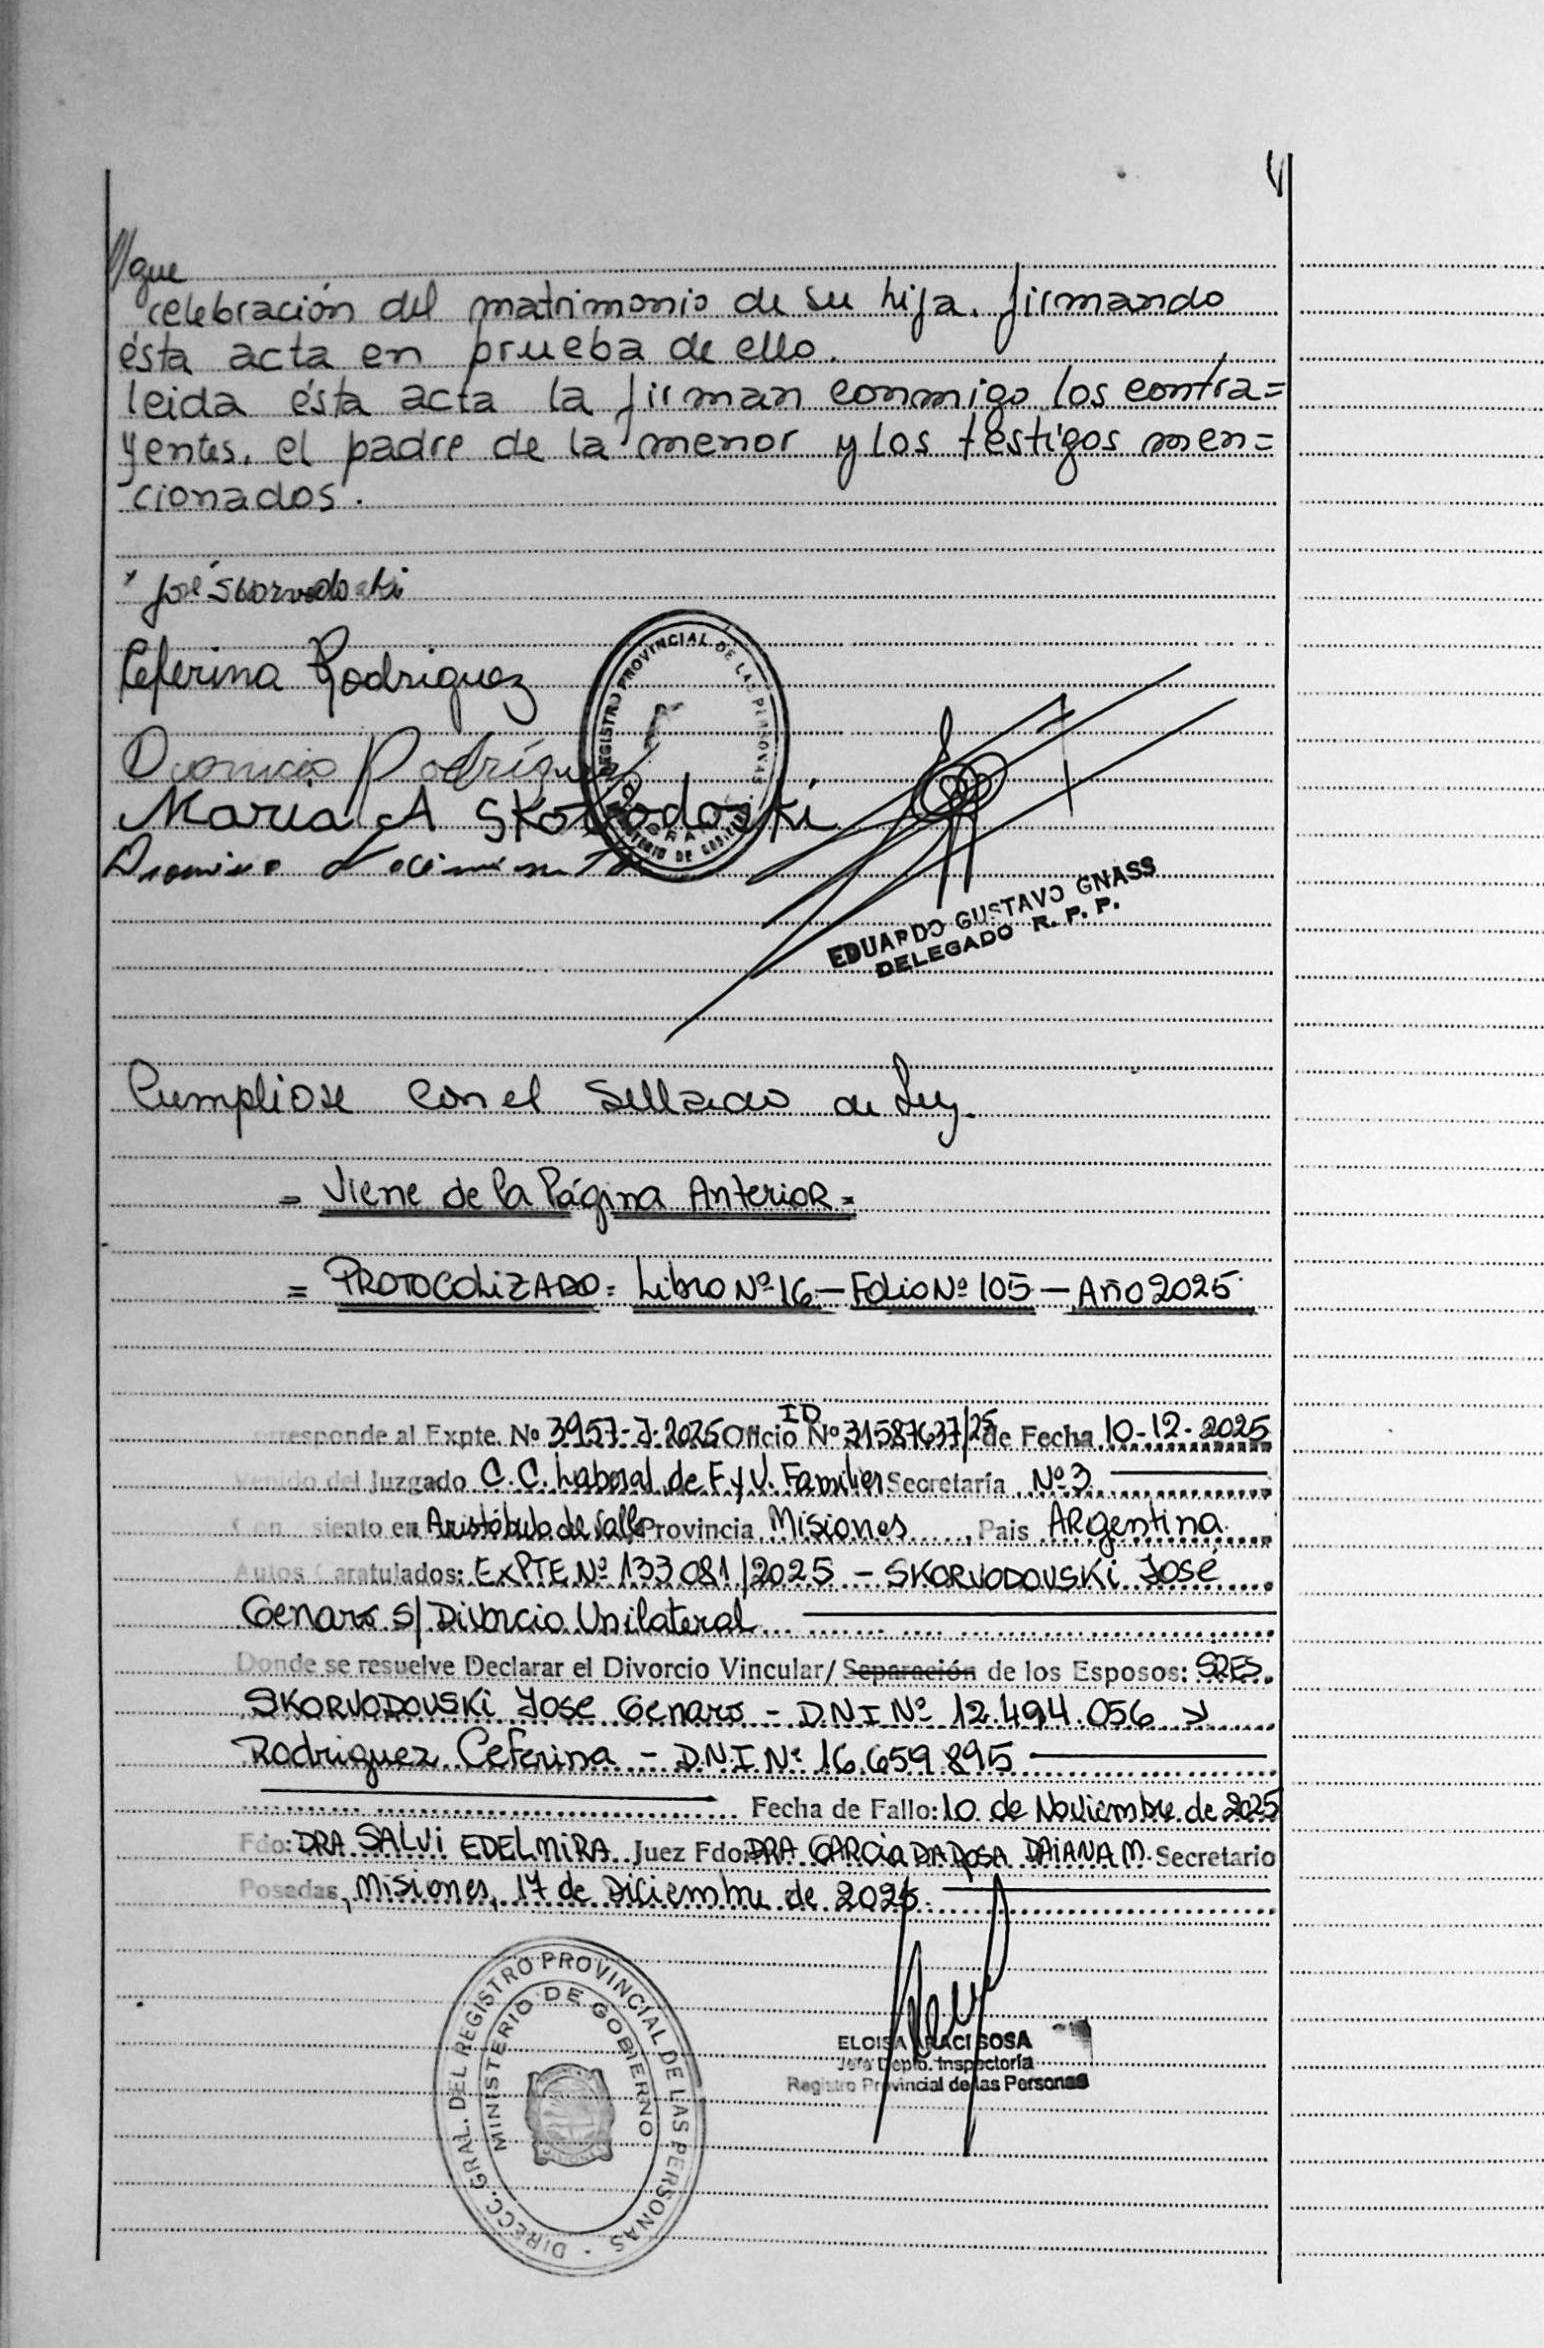 //que
celebración del matrimonio de su hija. firmando
ésta acta en prueba de ello.
leida ésta acta la firman conmigo los contra=
yentes, el padre de la menor y los testigos men=
cionados.
José Skorvodoski
Ceferina Rodriguez
REGISTRO PROVINCIAL DE LAS PERSONAS
Dionicio Rodríguez
Maria A Skorbodoski
MINISTERIO DE GOBIERNO
EDUARDO GUSTAVO GNASS
DELEGADO R. P. P.
Cumpliose con el Sellado de Ley.
= Viene de la Página Anterior =
= PROTOCOLIZADO = Libro Nº 16 — Folio Nº 105 — Año 2025
ID
Corresponde al Expte. Nº 3957-J-2025 Oficio Nº 31587637/25 de Fecha 10-12-2025
Venido del Juzgado C.C. Laboral de F y V. Familiar Secretaría Nº 3
Con asiento en Aristóbulo del Valle Provincia Misiones, Pais ARgentina
Autos Caratulados: EXPTE Nº 133081/2025 – SKORVODOVSKI José
Genaro S/ Divorcio Unilateral
Donde se resuelve Declarar el Divorcio Vincular/ Separación de los Esposos: SRES.
SKORVODOVSKI Jose Genaro – D.N.I Nº 12.494.056 y
Rodriguez Ceferina – D.N.I Nº 16.659.895
Fecha de Fallo: 10 de Noviembre de 2025
Fdo: DRA SALVI EDELMIRA Juez Fdo: DRA GARCIA DA ROSA DAIANA M. Secretario
Posadas, Misiones, 17 de Diciembre de 2025.
DIRECC. GRAL. DEL REGISTRO PROVINCIAL DE LAS PERSONAS
MINISTERIO DE GOBIERNO
ELOISA ARACI SOSA
Jefa Depto. Inspectoría
Registro Provincial de las Personas